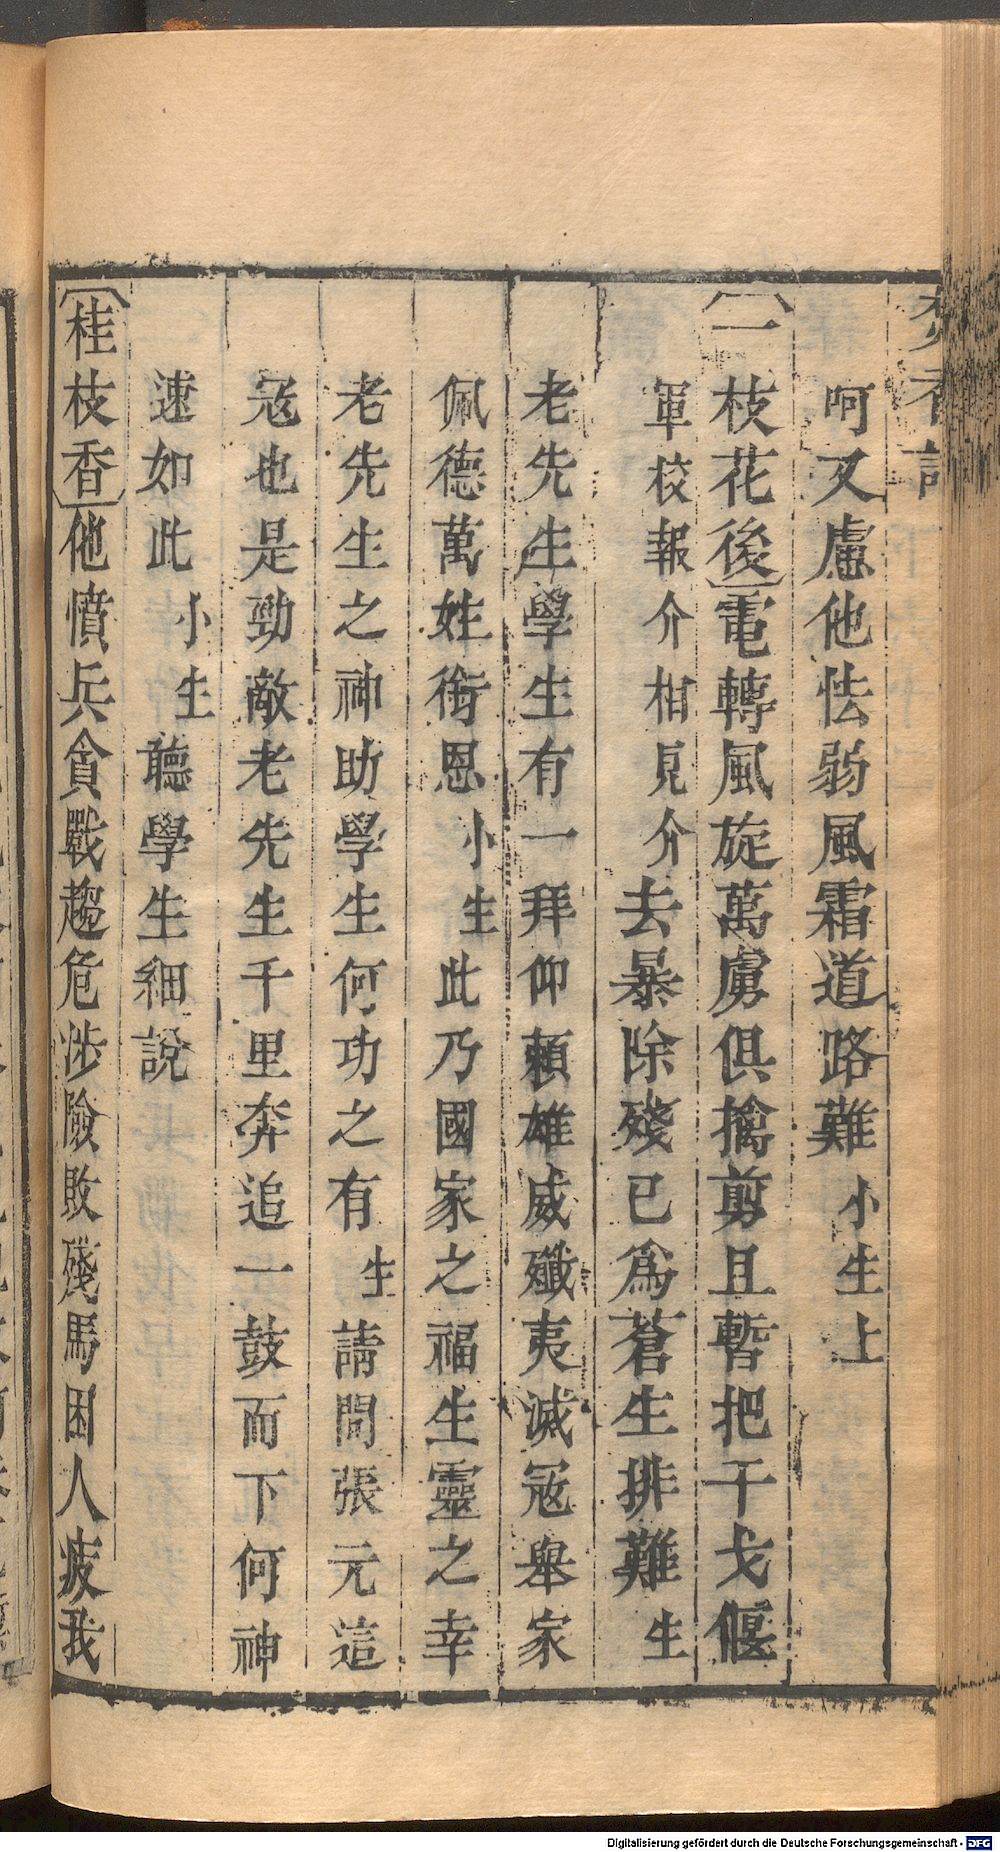 焚香記
呵又慮他怯弱風霜道路難小生上
〔一枝花後〕電轉風旋萬虜俱擒剪且暫把干戈偃
軍校報介相見介去暴除殘已爲蒼生排難生
老先生學生有一拜仰賴雄威殲夷滅冦舉家
佩德萬姓銜恩小生此乃國家之福生靈之幸
老先生之神助學生何功之有生請問張元這
冦也是勁敵老先生千里奔追一鼓而下何神
速如此小生聽學生細說
〔桂枝香〕他憤兵貪戰趨危涉險敗殘馬困人疲我
Digitalisierung gefördert durch die Deutsche Forschungsgemeinschaft - DFG